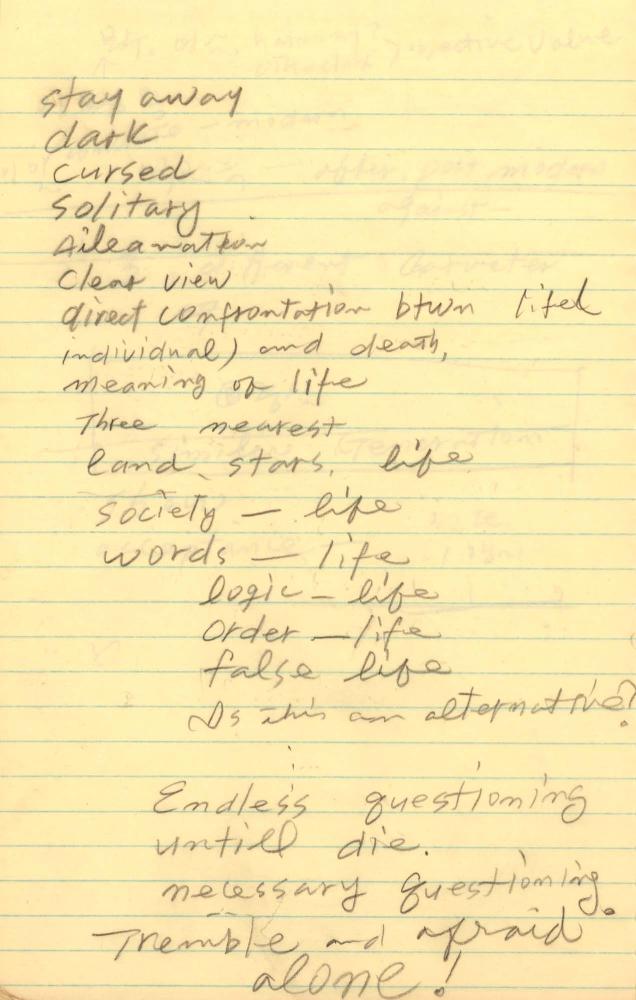 stay away
dark
cursed
solitary
Aileanation
Clear view
direct confrontation btwn life(
individual) and death,
meaning of life
Three nearest
land, stars, life
society – life
words – life
logic – life
order – life
false life
Is this an alternative?
Endless questioning
untill die.
necessary questioning.
Tremble and afraid
alone!